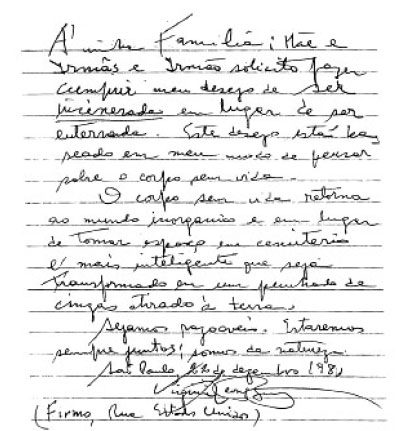 À minha Família; Mãe e
Irmãs e Irmão solicito fazer
cumprir meu desejo de ser
incenerada em lugar de ser
enterrada. Este desejo está ba
seado em meu modo de pensar
sobre o corpo sem vida.
O corpo sem vida retorna
ao mundo inorganico e em lugar
de tomar espaço em cemiterio
é mais inteligente que seja
transformado em um punhado de
cinzas atirado à terra.
Sejamos razoaveis. Estaremos
sempre juntos; somos da natureza
São Paulo, 22 de dezembro 198
(Firmo, Rua Estados Unidos)